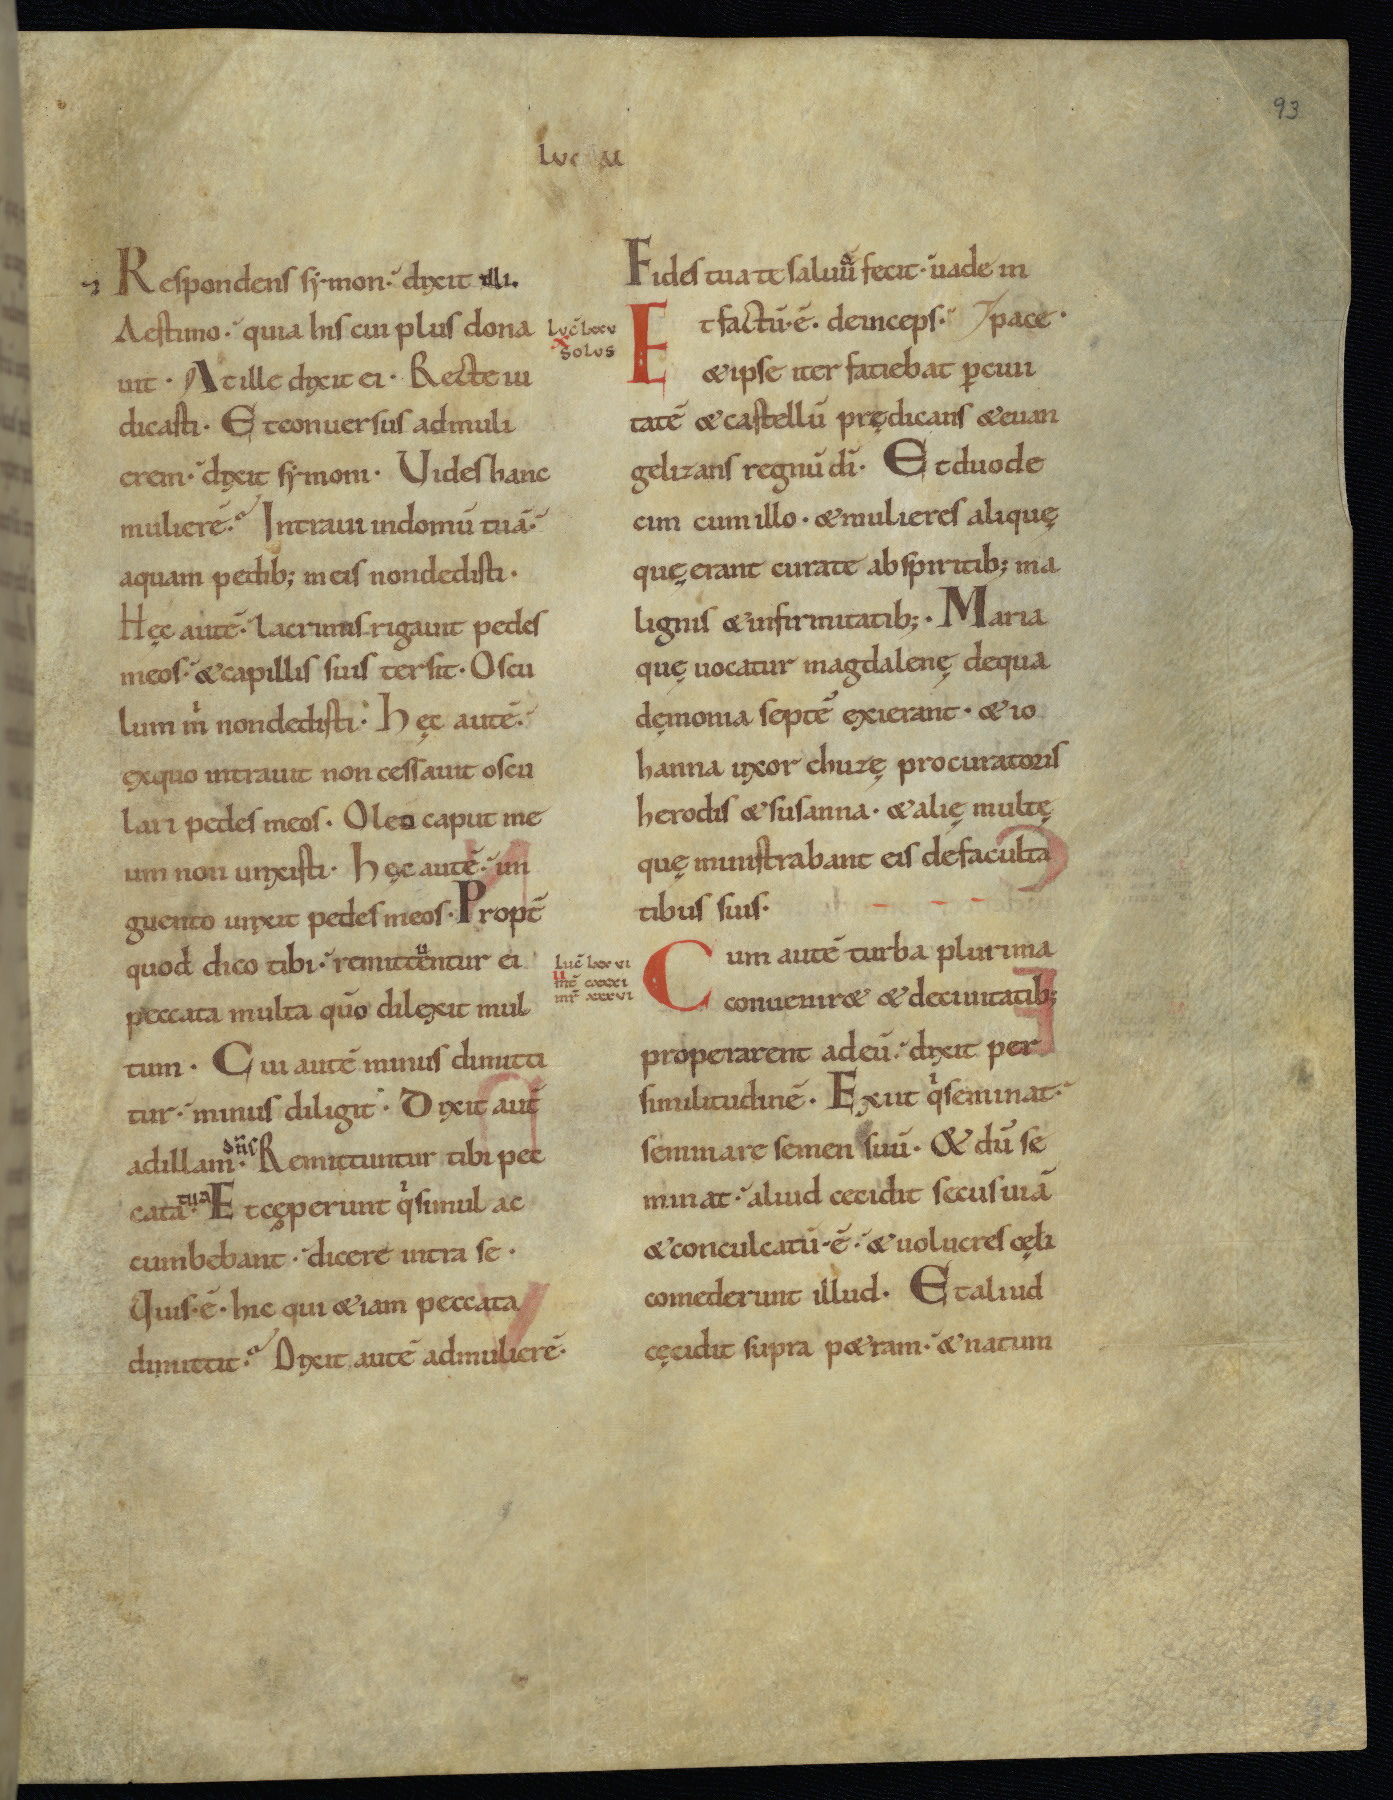 93
Respondens symon· dixit illi.
Aestimo· quia his cui plus dona
uit· At ille dixit ei· Recte iu
dicasti· Et conuersus ad muli
erem· dixit symoni· Uides hanc
mulierē· Intraui in domū tuā·
aquam pedib; meis non dedisti·
Hęc autē· lacrimis rigauit pedes
meos· & capillis suis tersit· Oscu
lum m̄ non dedisti· hęc autē·
ex quo intrauit non cessauit oscu
lari pedes meos· Oleo caput me
um non unxisti· hęc autē· un
guento unxit pedes meos· Propt̄
quod dico tibi· remittuntur ei
peccata multa qūo dilexit mul
tum· Cui autē minus dimitti
tur· minus diligit· Dixit aut̄
ad illam dn̄s· Remittuntur tibi pec
cata tua· Et cęperunt q'simul ac
cumbebant· dicere intra se·
Quis·ē· hic qui &iam peccata
dimittit· Dixit autē ad mulierē·
luc̄ lxxv
x
Solus
luc̄ lxxvi
ii
mt̄ cxxxi
mr̄ xxxvi
Fides tua te saluā fecit· uade in
pace·
Et factū·ē· deinceps·
& ipse iter faciebat p ciui
tatē & castellū prędicans & euan
gelizans regnū dī· Et duode
cim cum illo· & mulieres aliquę
quę erant curate ab spiritib; ma
lignis & infirmitatib;· Maria
quę uocatur magdalenę de qua
dęmonia septē exierant· & io
hanna uxor chuzę procuratoris
herodis & susanna· & alię multę
quę ministrabant eis de faculta
tibus suis·
Cum autē turba plurima
conuenir& & de ciuitatib;
properarent ad eū· dixit per
similitudinē· Exiit q'seminat·
seminare semen suū· & dū se
minat· aliud cecidit secus uiā
& conculcatū·ē· & uolucres cęli
comederunt illud· Et aliud
cęcidit supra p&ram· & natum